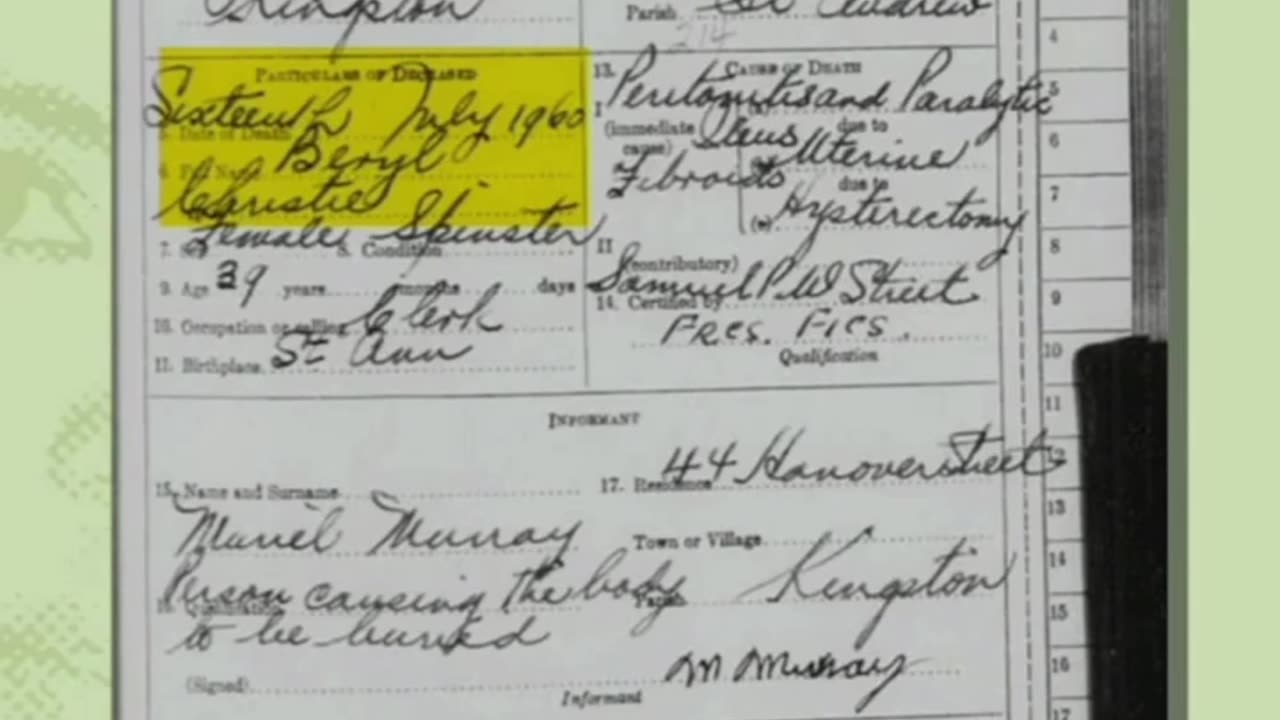 Kingston
Parish St Andrew
214
PARTICULARS OF DECEASED
Sixteenth July 1960
2. Date of Death
Beryl
4. Full Name
Christie
Female, Spinster
7. Sex 8. Condition
9. Age 39 years months days
10. Occupation or calling Clerk
11. Birthplace St Ann
13. CAUSE OF DEATH
Peritonitis and Paralytic
I (a)
(immediate cause) Ileus due to
(b) Uterine
Fibroids due to
(c) Hysterectomy
II
(contributory)
Samuel P.W. Street
14. Certified by
FRCS. FICS.
Qualification
INFORMANT
15. Name and Surname
Muriel Murray
Person causing the body
16. Qualification
to be buried
(Signed) M Murray
Informant
44 Hanover Street
17. Residence
Town or Village
Parish Kingston
4
5
6
7
8
9
10
11
12
13
14
15
16
17